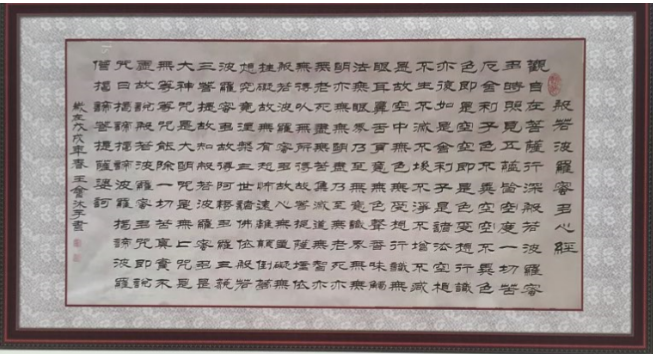 般若波羅密多心經
觀自在菩薩行深般若波羅密
多時照見五蘊皆空度一切苦
厄舍利子色不異空空不異色
色即是空空即是色受想行識
亦復如是舍利子是諸法空相
不生不滅不垢不淨不增不減
是故空中無色無受想行識無
眼耳鼻舌身意無色聲香味觸
法無眼界乃至無意識界無無
明亦無無明盡乃至無老死亦
無老死盡無苦集滅道無智亦
無得以無所得故菩提薩埵依
般若波羅密多故心無罣礙無
挂礙故無有恐怖遠離顛倒夢
想究竟涅槃三世諸佛依般若
波羅密多故得阿耨多羅三藐
三菩提故知般若波羅密多是
大神咒是大明咒是無上咒是
無等等咒能除一切苦真實不
虛故說般若波羅密多咒即說
咒曰揭諦揭諦波羅揭諦波羅
僧揭諦菩提薩婆訶
歲在戊戌年春王金書